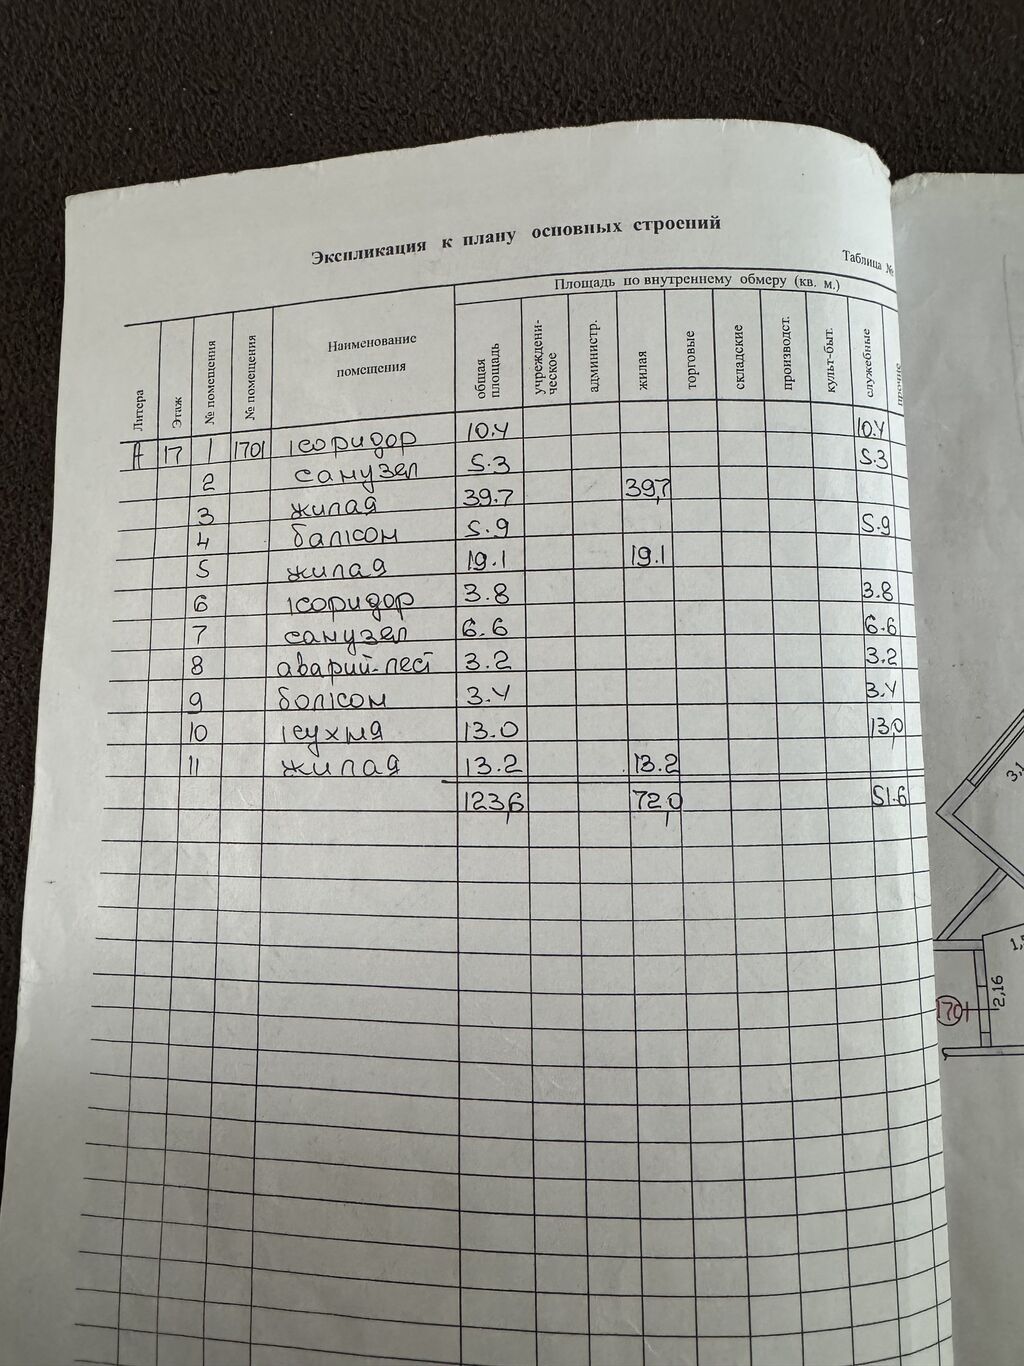 Экспликация к плану основных строений
Таблица №
Площадь по внутреннему обмеру (кв. м.)
Литера Этаж № помещения № помещения Наименование помещения общая площадь учреждени-ческое администр. жилая торговые складские производст. культ-быт. служебные прочие
А 17 1 1701 коридор 10.4 10.4
2 санузел 5.3 5.3
3 жилая 39.7 39,7
4 балкон 5.9 5.9
5 жилая 19.1 19.1
6 коридор 3.8 3.8
7 санузел 6.6 6.6
8 аварий.лест 3.2 3.2
9 болкон 3.4 3.4
10 кухня 13.0 13,0
11 жилая 13.2 13.2
123,6 72,0 51.6
3,1
1701
2,16